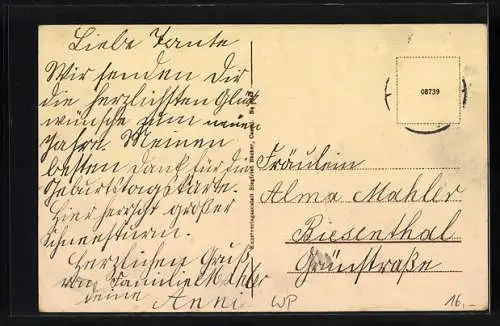 Liebe Tante
Wir senden Dir
die herzlichsten Glück
wünsche zum neuen
Jahre. Meinen
besten Dank für die
Geburtstagskarte.
Hier herrscht großer
Schneesturm.
Herzlichen Gruß
von Familie Mahler
deine Anni
08739
Fräulein
Alma Mahler
Biesenthal
Grünstraße
WP
16.-